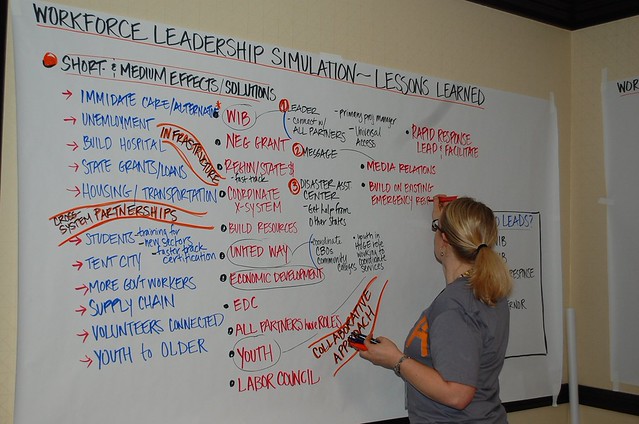 WORKFORCE LEADERSHIP SIMULATION~ LESSONS LEARNED
SHORT & MEDIUM EFFECTS/SOLUTIONS
→ IMMIDATE CARE/ALTERNATE
→ UNEMPLOYMENT
→ BUILD HOSPITAL
→ STATE GRANTS/LOANS
→ HOUSING/TRANSPORTATION
INFRASTRUCTURE
CROSS-
SYSTEM PARTNERSHIPS
→ STUDENTS -training for
new sectors
- faster track
certification
→ TENT CITY
→ MORE GOV'T WORKERS
→ SUPPLY CHAIN
→ VOLUNTEERS CONNECTED
→ YOUTH to OLDER
$
WIB
NEG GRANT
REGION/STATE $
- fast track
COORDINATE
X-SYSTEM
BUILD RESOURCES
UNITED WAY
ECONOMIC DEVELOPMENT
EDC
ALL PARTNERS have ROLES
YOUTH
LABOR COUNCIL
1 LEADER
- connect w/
ALL PARTNERS
- primary
manager
- Universal
Access
2 MESSAGE
3 DISASTER ASST
CENTER
- Get help from
other States
coordinate
CBOs
community
colleges
youth in
HUGE role
working to
coordinate
services
COLLABORATIVE
APPROACH
RAPID RESPONSE
LEAD & FACILITATE
MEDIA RELATIONS
BUILD ON EXISTING
EMERGENCY
LEADS?
WIB
WO
A